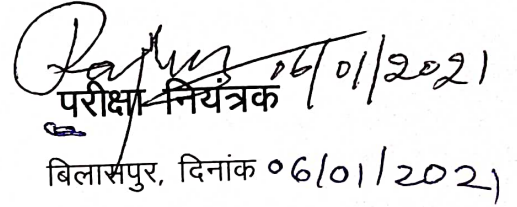 06/01/2021
परीक्षा नियंत्रक
बिलासपुर, दिनांक 06/01/2021